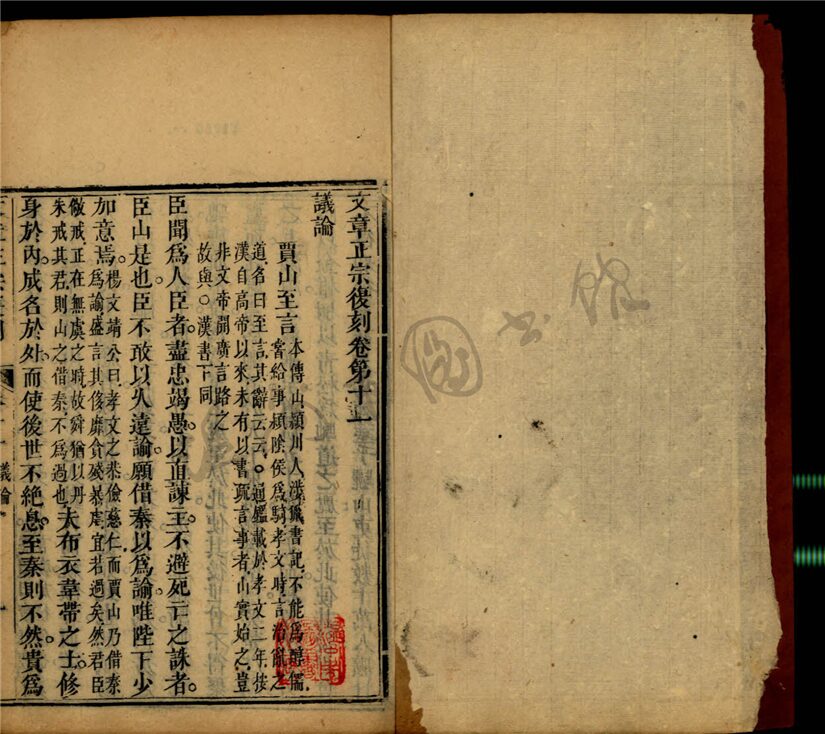 文章正宗復刻卷第十一
議論
賈山至言
本傳山潁川人涉獵書記不能爲醇儒
嘗給事潁陰侯爲騎孝文時言治亂之
道名曰至言其辭云云○通鑑載於孝文二年按
漢自高帝以來未有以書疏言事者山實始之豈
非文帝開廣言路之
故與○漢書下同
臣聞爲人臣者盡忠竭愚以直諫主不避死亡之誅者
臣山是也臣不敢以久遠諭願借秦以爲諭唯陛下少
如意焉
楊文靖公曰孝文之恭儉慈仁而賈山乃借秦
爲諭盛言其侈靡貪殘暴虐宜若過矣然君臣
儆戒正在無虞之時故舜猶以丹
朱戒其君則山之借秦不爲過也
夫布衣韋帶之士修
身於內成名於外而使後世不絕息至秦則不然貴爲
議論